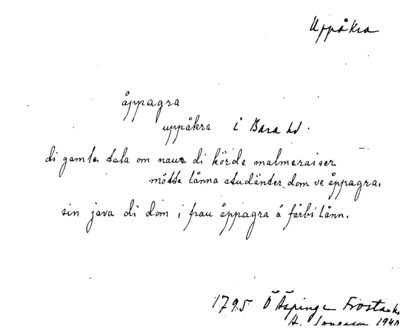 Uppåkra
åppagra
uppåkra i Bara hd.
di gamle tala om naur di körde malmeraiser
mötte lånna studenter dom ve åppagra,
sin java di dom i frau åppagra å färbi lånn.
1795 Ö Äspinge Frosta hd
H. 1940